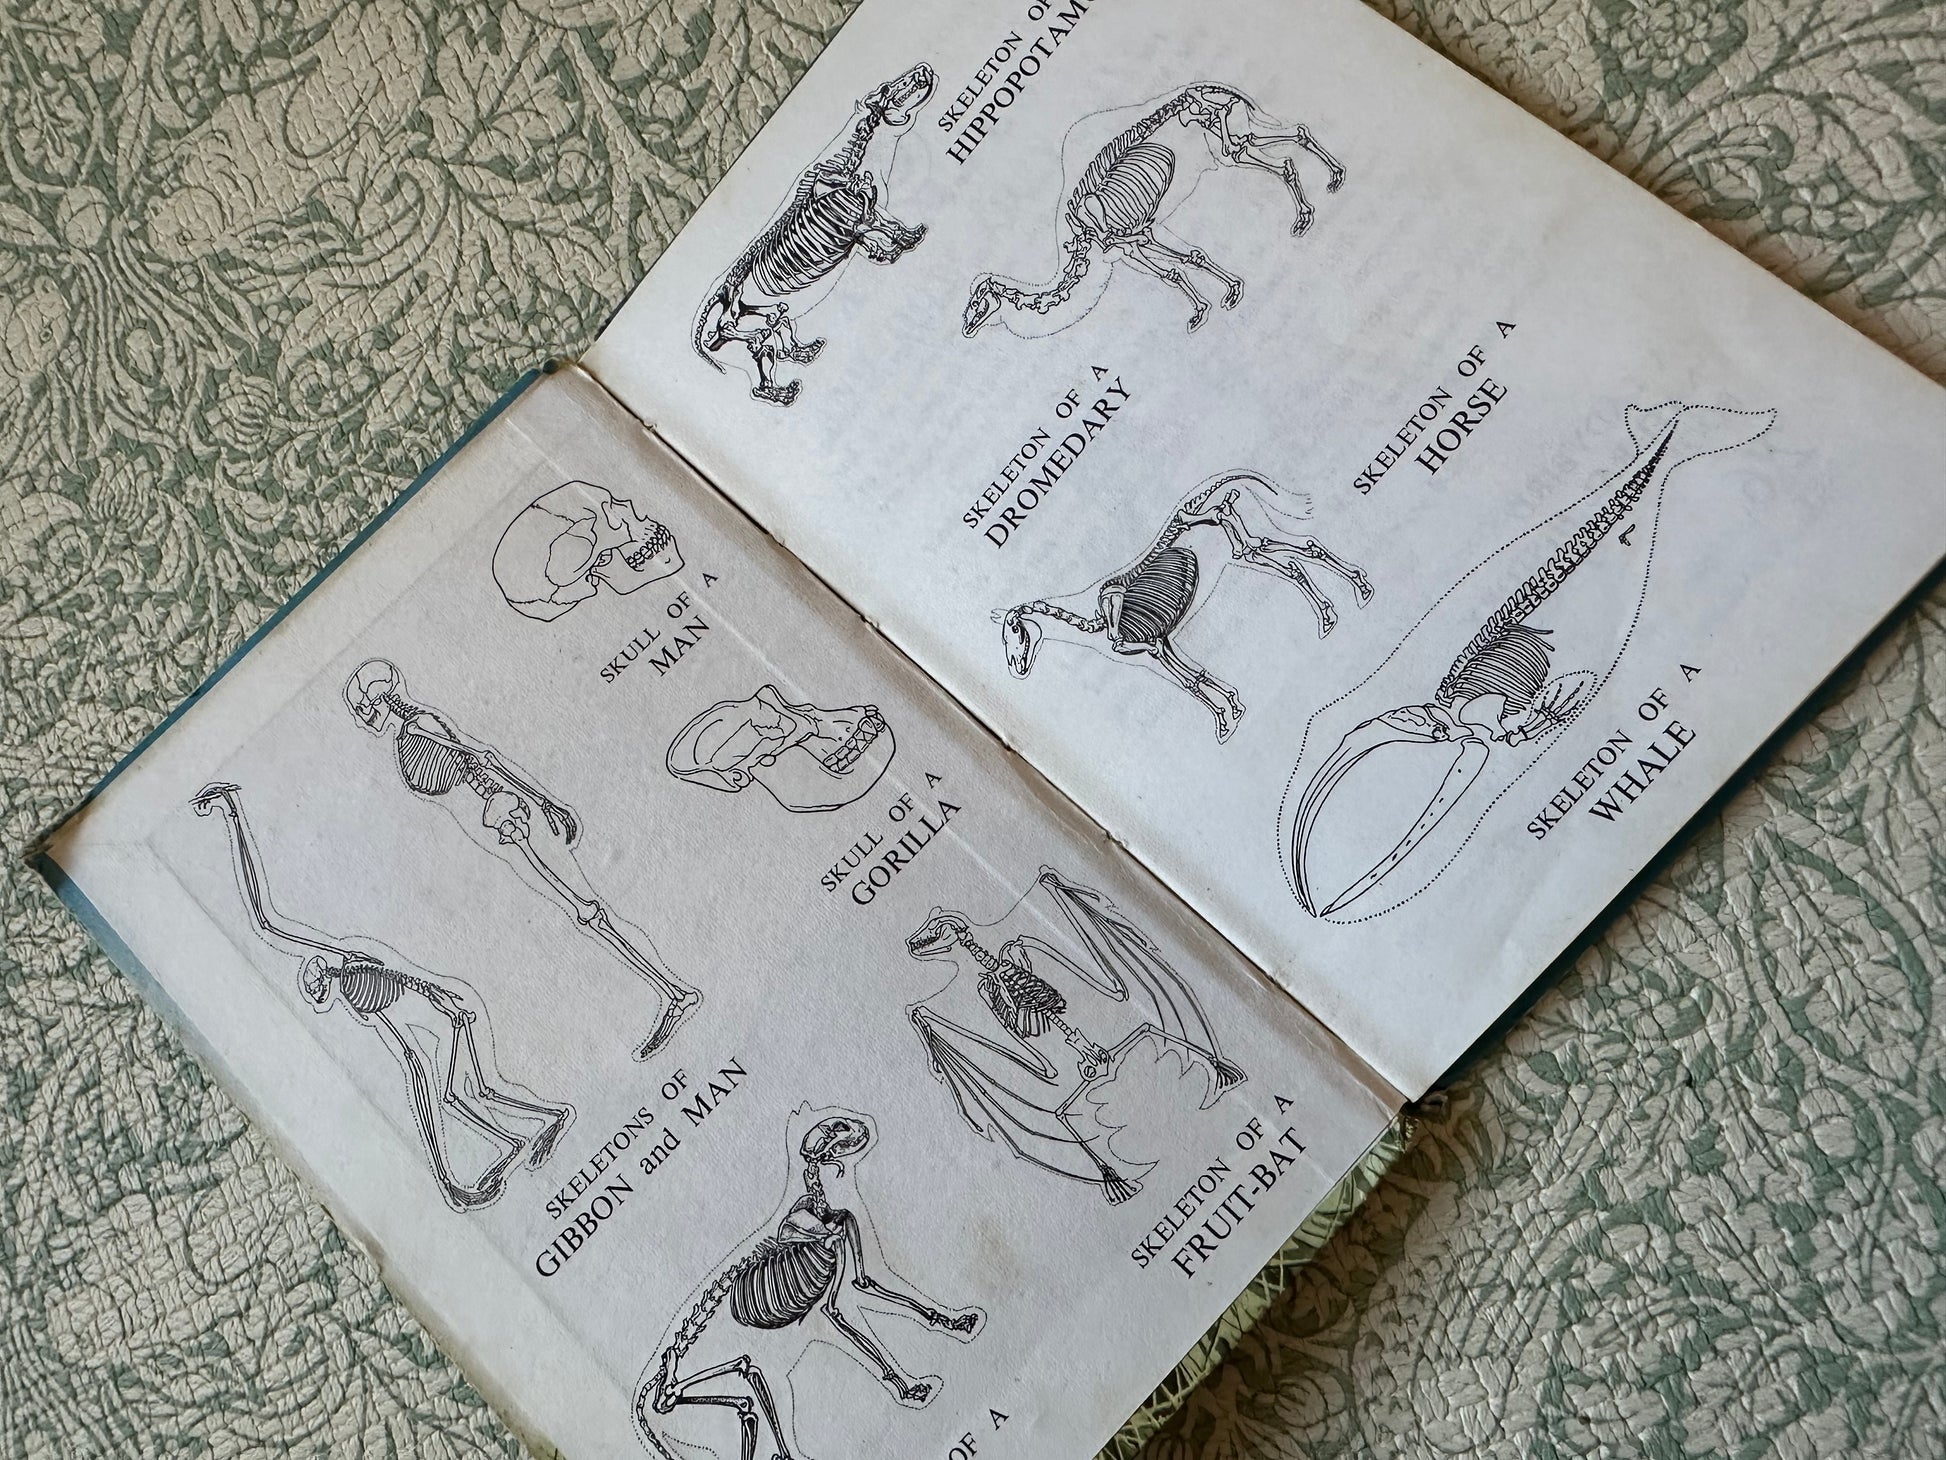 SKULL OF A
MAN
SKULL OF A
GORILLA
SKELETONS OF
GIBBON and MAN
SKELETON OF A
FRUIT-BAT
OF A
SKELETON OF
SKELETON OF A
DROMEDARY
SKELETON OF A
HORSE
SKELETON OF A
WHALE